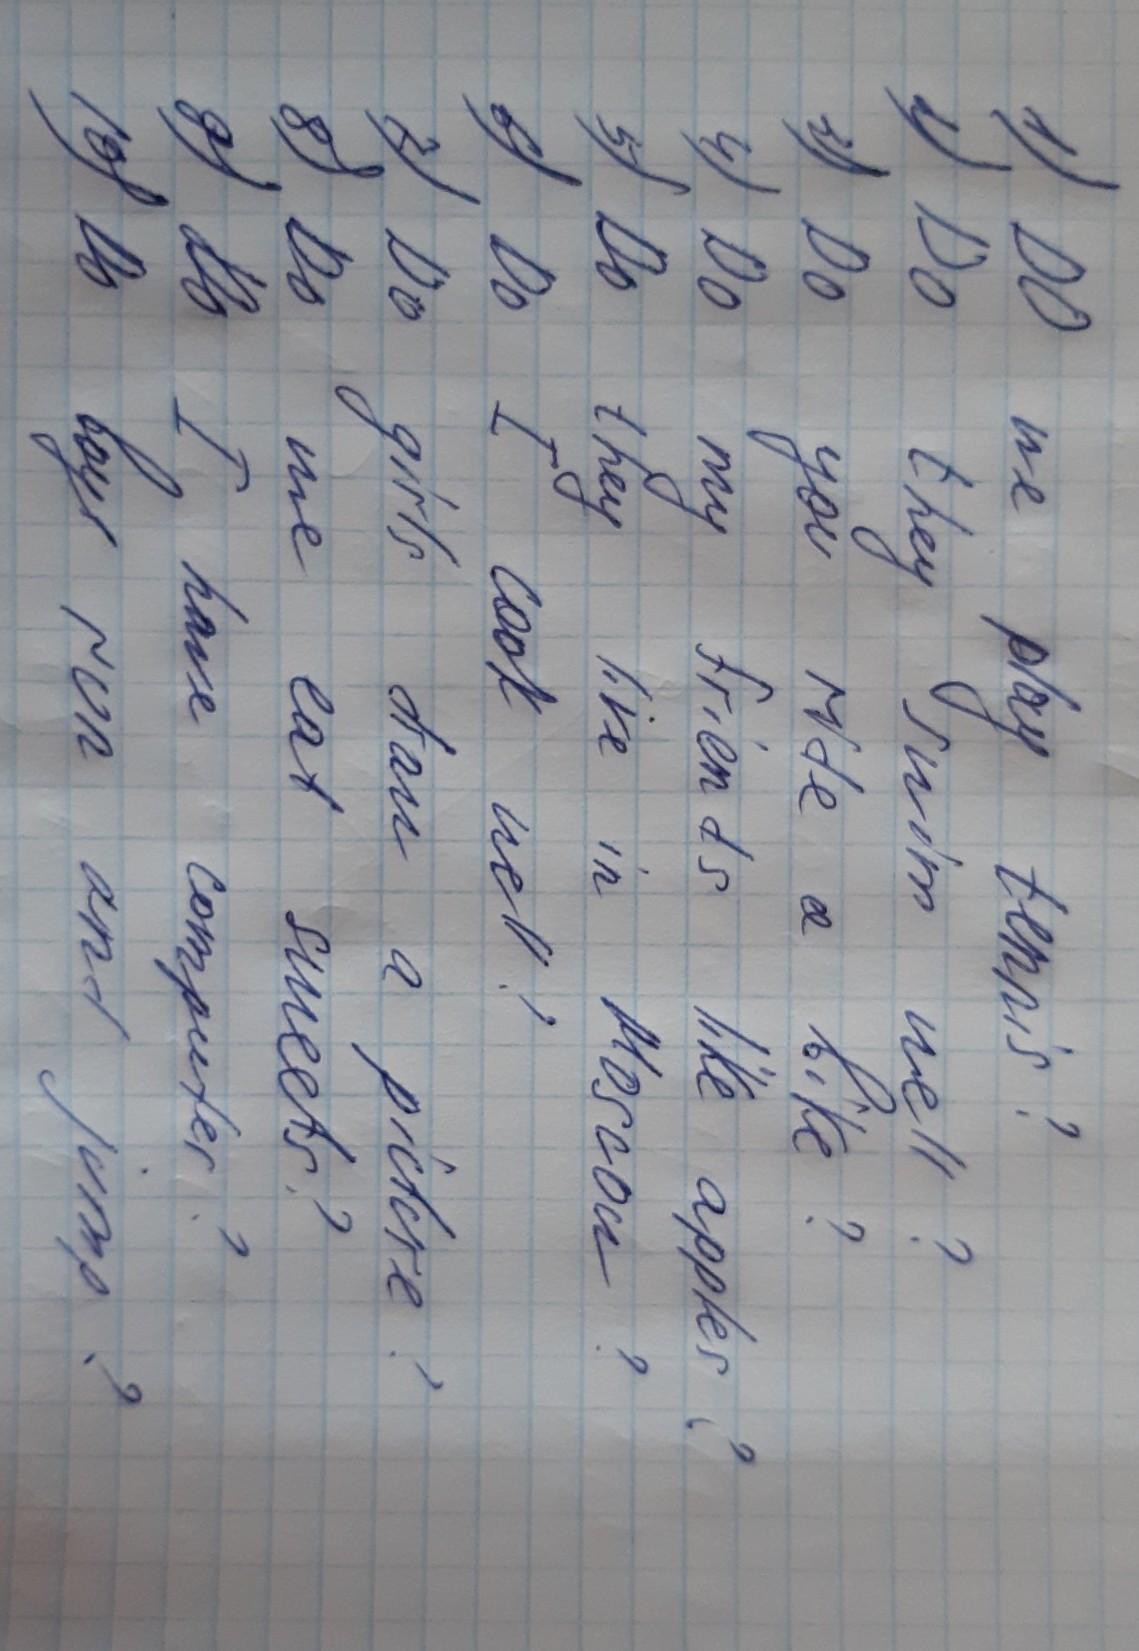 1) Do we play tennis?
2) Do they swim well?
3) Do you ride a bike?
4) Do my friends like apples?
5) Do they live in Moscow?
6) Do I cook well?
7) Do girls draw a picture?
8) Do we eat sweets?
9) Do I have computer?
10) Do boys run and jump?